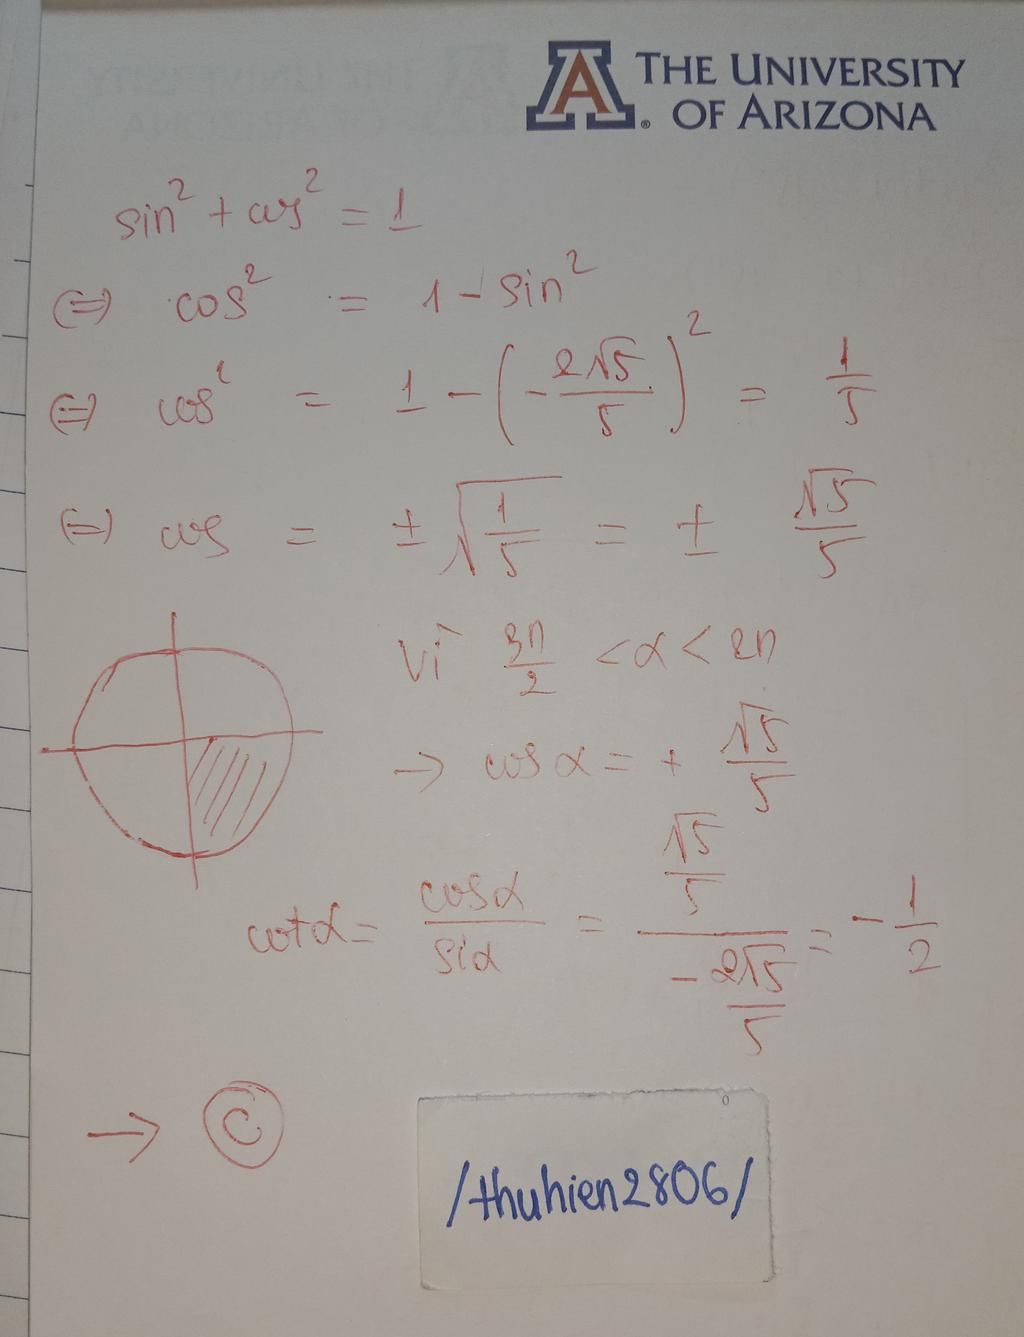 THE UNIVERSITY
OF ARIZONA
sin² + cos² = 1
(=) cos² = 1 - sin²
(=) cos² = 1 - (-2√5/5)² = 1/5
(=) cos = ± √(1/5) = ± √5/5
Vì 3π/2 < α < 2π
→ cos α = + √5/5
cot α = cos α / si α = (√5/5) / (-2√5/5) = - 1/2
→ C
/thuhien2806/